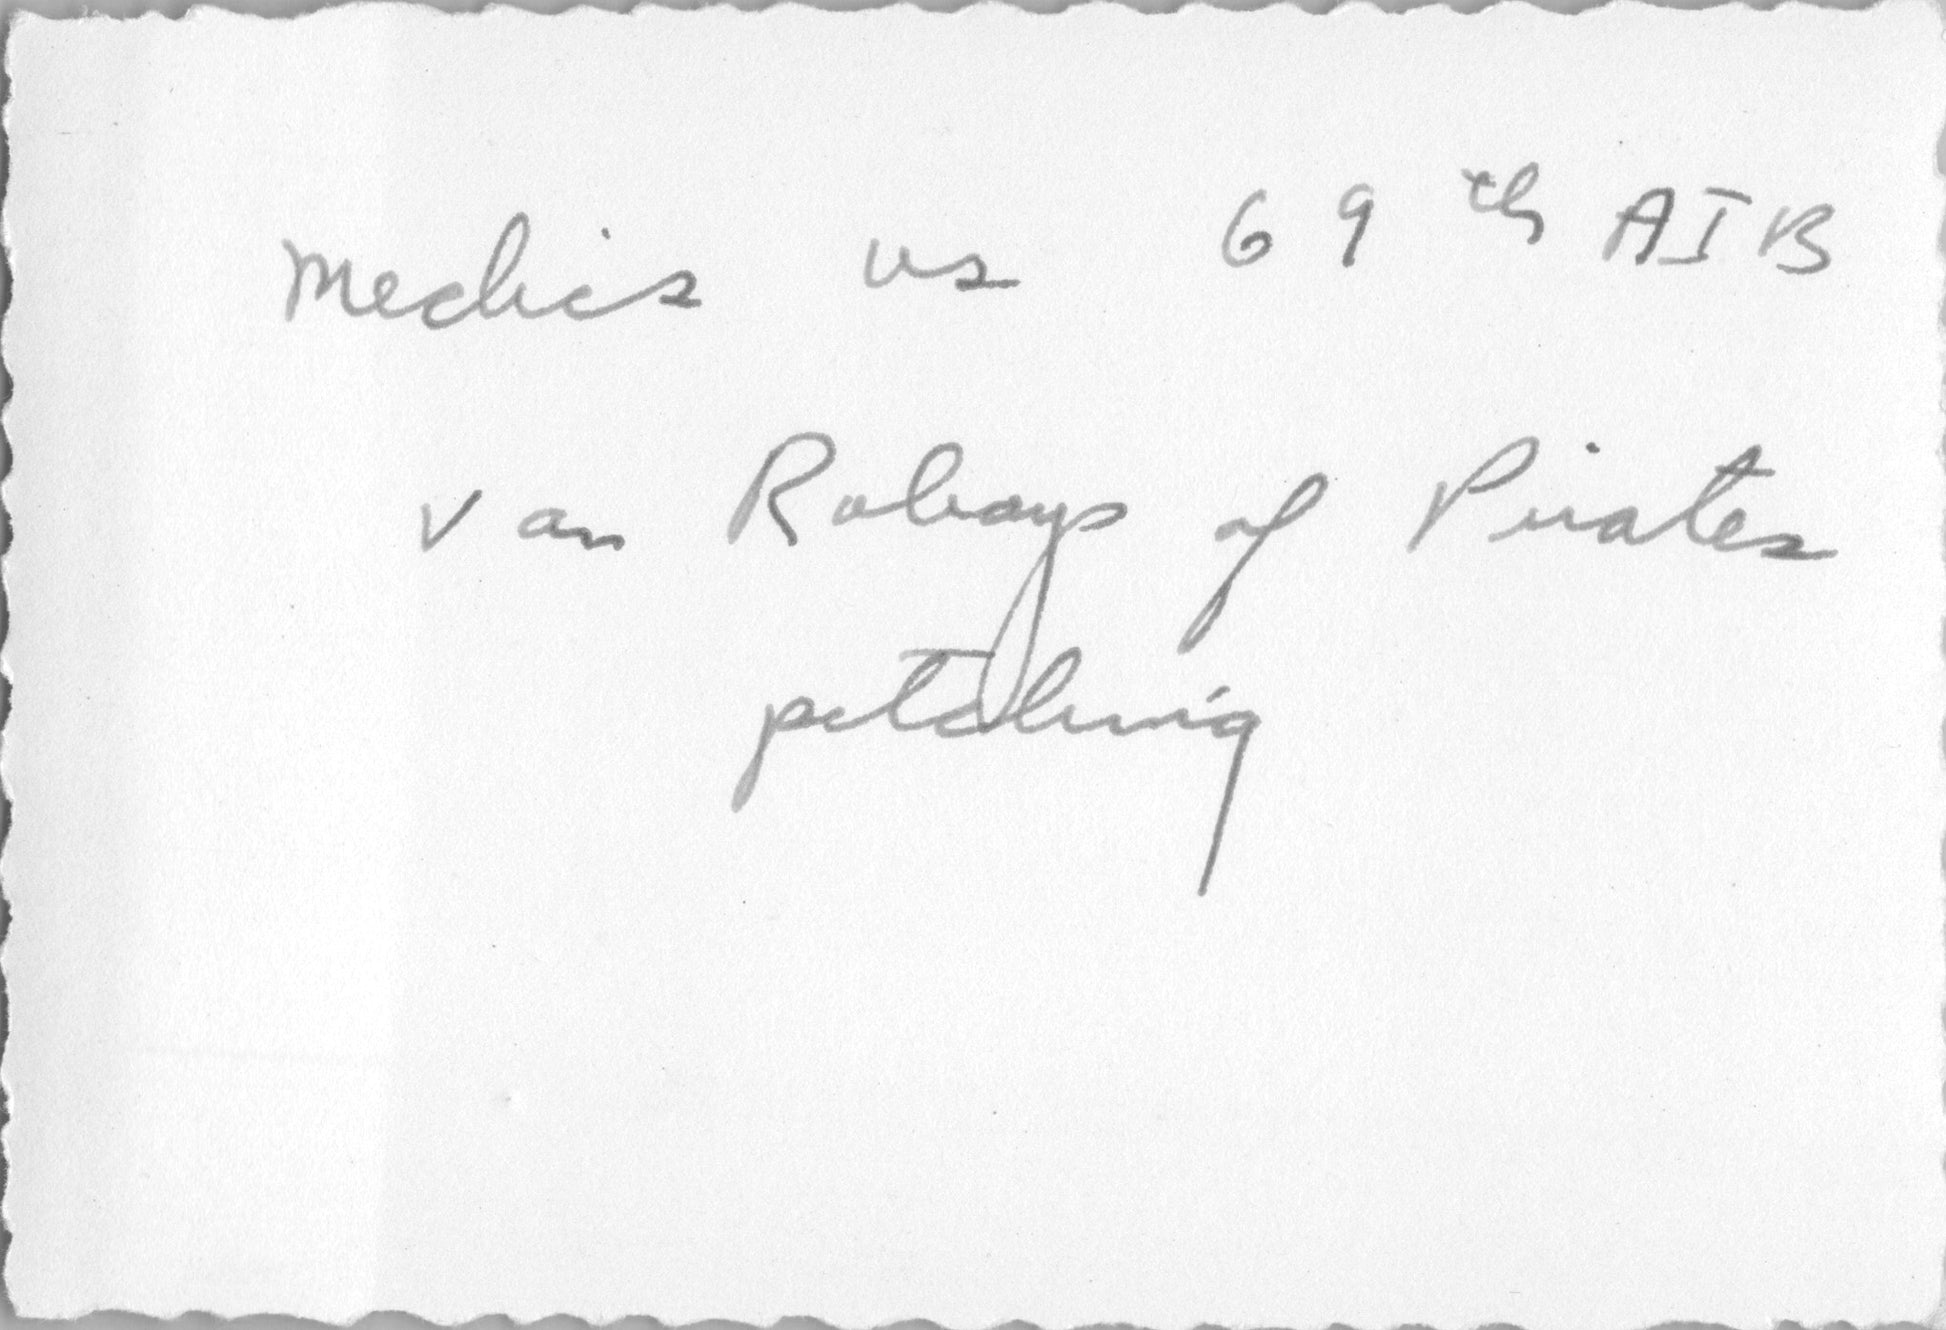 Medics vs 69th AIB
van Robays of Pirates
pitching